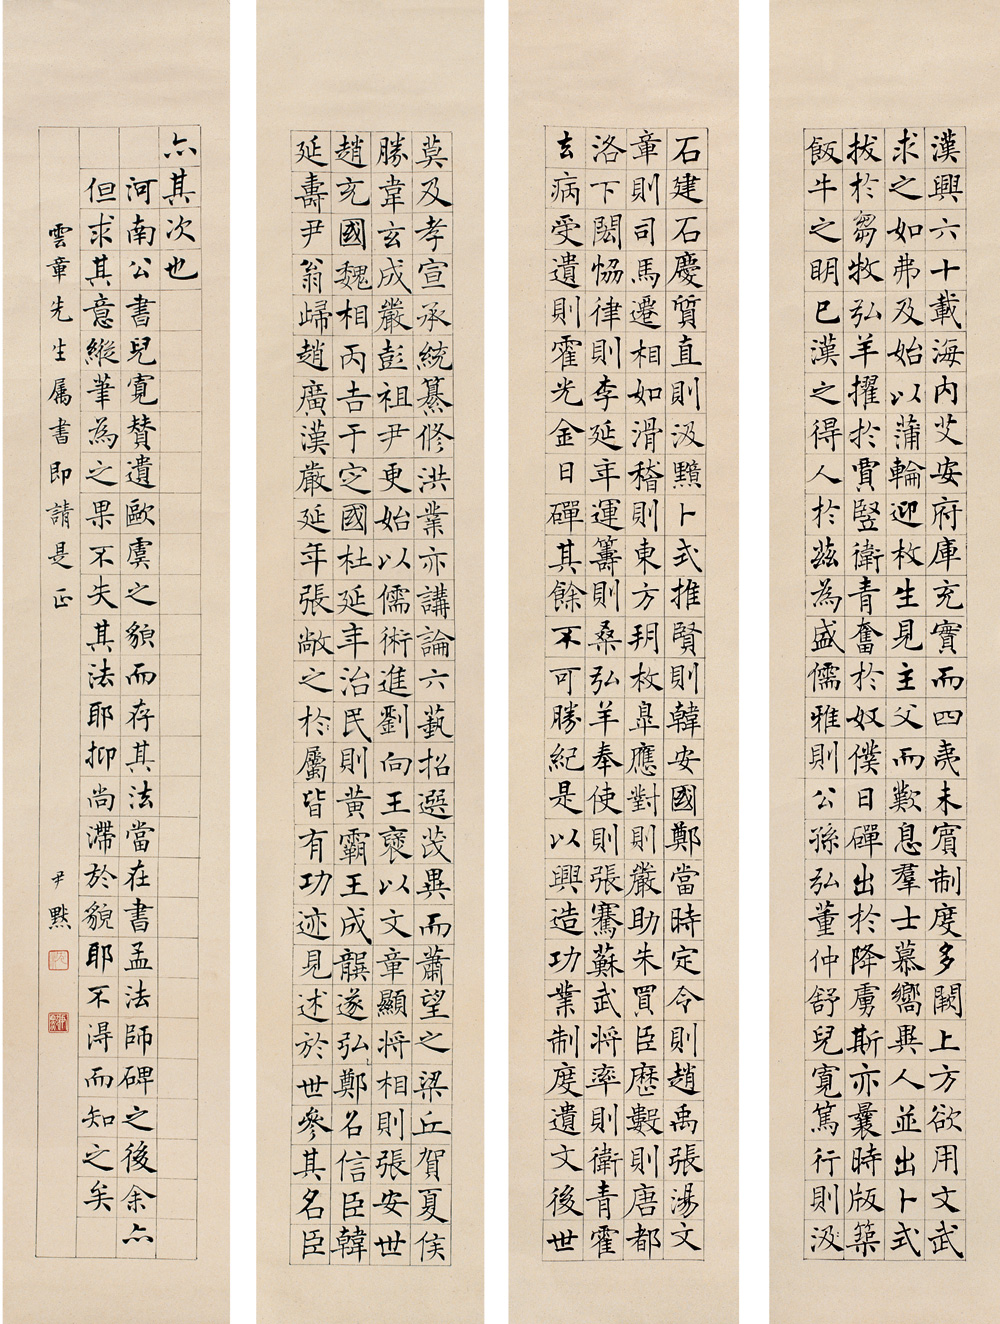 漢興六十載海内艾安府庫充實而四夷未賓制度多闕上方欲用文武
求之如弗及始以蒲輪迎枚生見主父而歎息羣士慕嚮異人並出卜式
拔於芻牧弘羊擢於賈豎衛青奮於奴僕日磾出於降虜斯亦曩時版築
飯牛之明已漢之得人於茲為盛儒雅則公孫弘董仲舒兒寬篤行則汲
石建石慶質直則汲黯卜式推賢則韓安國鄭當時定令則趙禹張湯文
章則司馬遷相如滑稽則東方朔枚臯應對則嚴助朱買臣歷數則唐都
洛下閎恊律則李延年運籌則桑弘羊奉使則張騫蘇武將率則衛青霍
去病受遺則霍光金日磾其餘不可勝紀是以興造功業制度遺文後世
莫及孝宣承統纂修洪業亦講論六藝招選茂異而蕭望之梁丘賀夏侯
勝韋玄成嚴彭祖尹更始以儒術進劉向王襃以文章顯將相則張安世
趙充國魏相丙吉于定國杜延年治民則黃霸王成龔遂弘鄭名信臣韓
延壽尹翁歸趙廣漢嚴延年張敞之於屬皆有功迹見述於世參其名臣
亦其次也
河南公書兒寬贊遺歐虞之貌而存其法當在書孟法師碑之後余亦
但求其意縱筆為之果不失其法耶抑尚滯於貌耶不得而知之矣
雲章先生属書即請是正 尹默